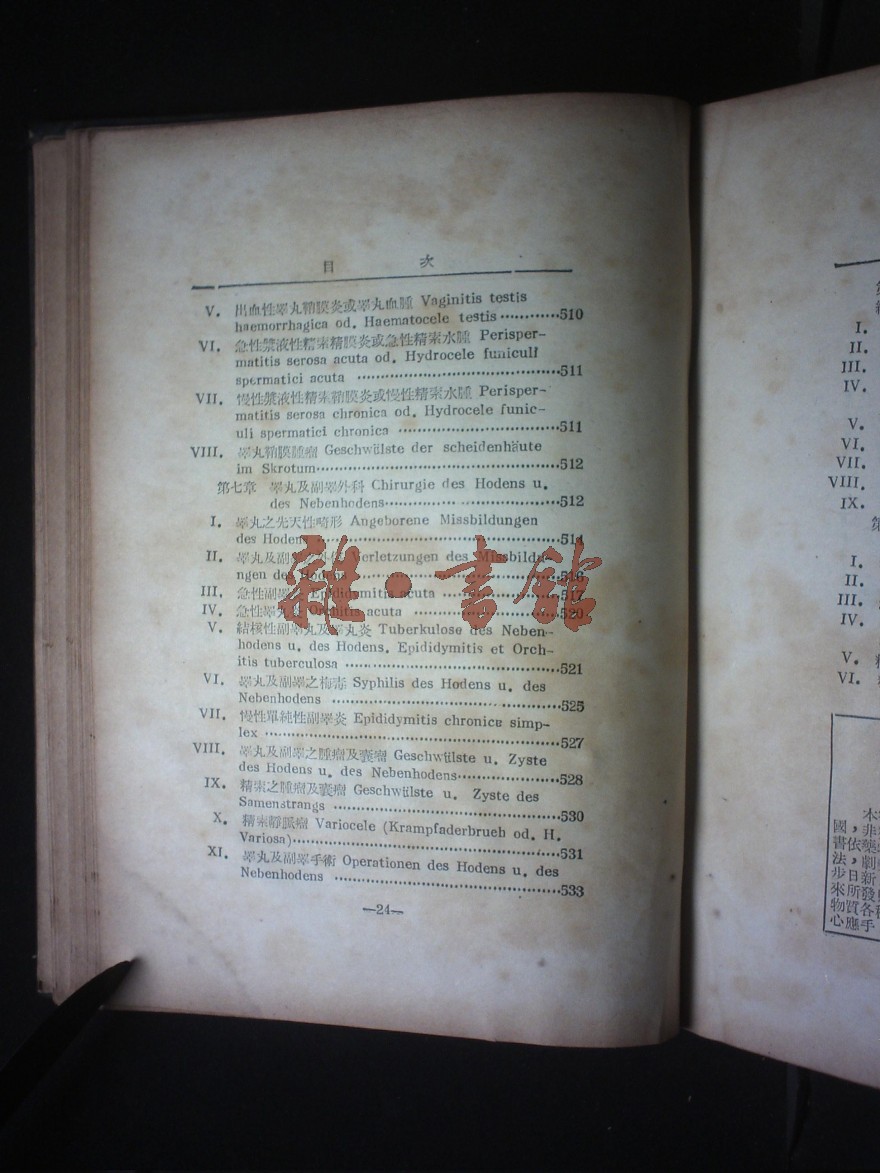 目 次
V. 出血性睪丸鞘膜炎或睪丸血腫 Vaginitis testis
haemorrhagica od. Haematocele testis············510
VI. 急性漿液性精索精膜炎或急性精索水腫 Perisper-
matitis serosa acuta od. Hydrocele funiculi
spermatici acuta ············511
VII. 慢性漿液性精索鞘膜炎或慢性精索水腫 Perisper-
matitis serosa chronica od. Hydrocele funic-
uli spermatici chronica ············511
VIII. 睪丸鞘膜腫瘤 Geschwülste der scheidenhäute
im Skrotum············512
第七章 睪丸及副睪外科 Chirurgie des Hodens u.
des Nebenhodens············512
I. 睪丸之先天性畸形 Angeborene Missbildungen
des Hodens············514
II. 睪丸及副睪之外傷 Verletzungen des Missbildu-
ngen des Hodens ············516
III. 急性副睪 Epididymitis acuta ············517
IV. 急性睪丸 Orchitis acuta ············520
V. 結核性副睪丸及睪丸炎 Tuberkulose des Neben-
hodens u. des Hodens, Epididymitis et Orch-
itis tuberculosa ············521
VI. 睪丸及副睪之梅毒 Syphilis des Hodens u. des
Nebenhodens ············525
VII. 慢性單純性副睪炎 Epididymitis chronica simp-
lex ············527
VIII. 睪丸及副睪之腫瘤及囊瘤 Geschwülste u. Zyste
des Hodens u. des Nebenhodens············528
IX. 精索之腫瘤及囊瘤 Geschwülste u. Zyste des
Samenstrangs ············530
X. 精索靜脈瘤 Variocele (Krampfaderbrueb od. H.
Variosa)············531
XI. 睪丸及副睪手術 Operationen des Hodens u. des
Nebenhodens ············533
—24—
雜·書館
I.
II.
III.
IV.
V.
VI.
VII.
VIII.
IX.
第
I.
II.
III.
IV.
V.
VI.
國，非
書依藥
法，劇
步日新
來所發
物質各種
心應手